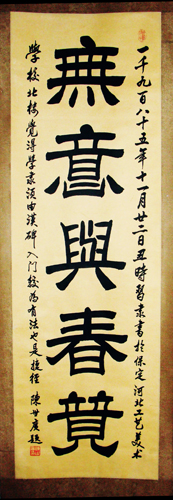 無意與春競
一千九百八十五年十一月廿二日丑時習隸書於保定河北工艺美术
學校北楼覺得學隸須由漢碑入门校為有法也是捷徑 陳世題